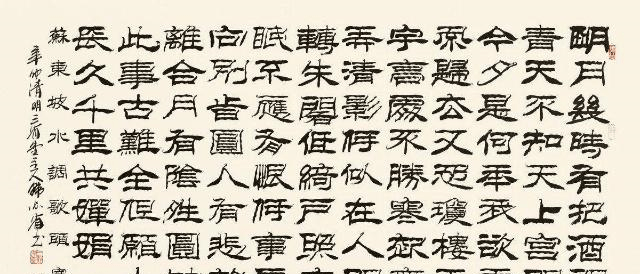 明月幾時有把酒
青天不知天上宮
今夕是何年我欲
風歸去又恐瓊樓
宇高處不勝寒起
弄清影何似在人
轉朱閣低綺戶照
眠不應有恨何事
向别旹圓人有悲
離合月有陰晴圓
此事古難全但願
長久千里共嬋娟
蘇東坡水調歌頭
辛卯清明三省堂主人